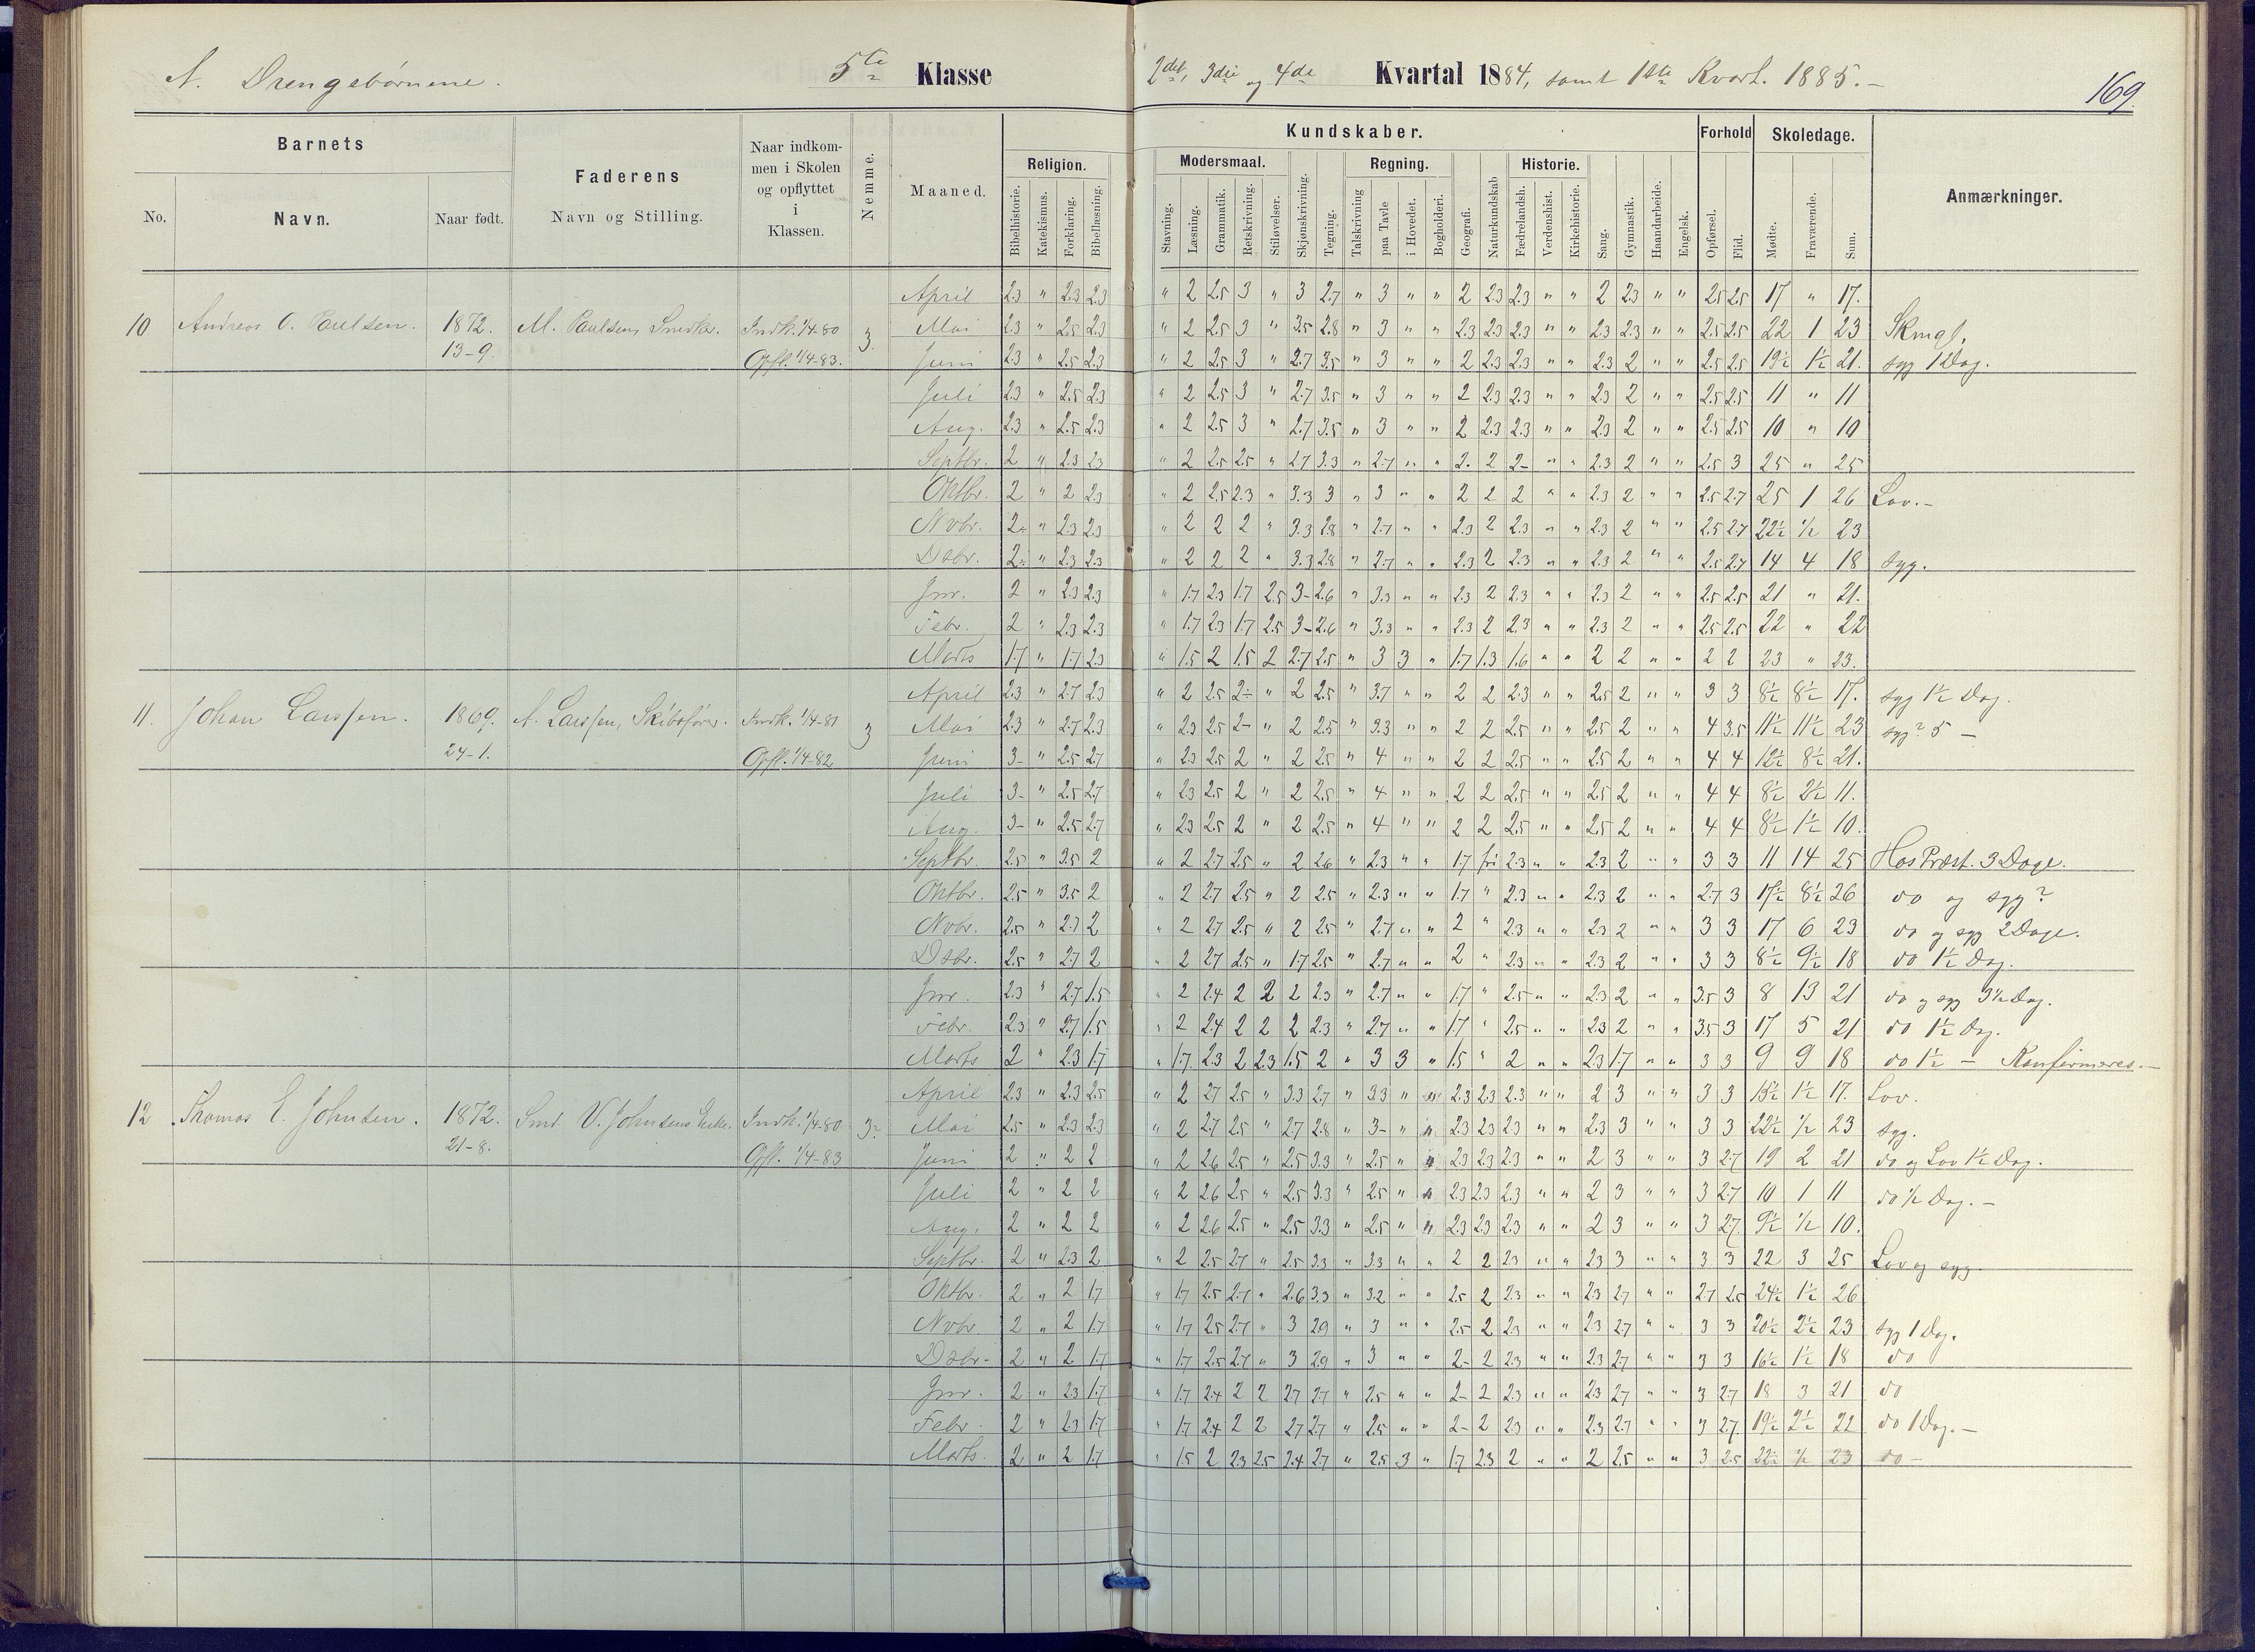 A. Drengebørnene.
5te Klasse
2det, 3die og 4de Kvartal 1884, samt 1ste Kvart. 1885.-
169.
Barnets
No.
Navn.
Naar født.
Faderens
Navn og Stilling.
Naar indkom-
men i Skolen
og opflyttet
i
Klassen.
Nemme.
Maaned.
Religion.
Bibelhistorie.
Katekismus.
Forklaring.
Bibellæsning.
Kundskaber.
Modersmaal.
Stavning.
Læsning.
Grammatik.
Retskrivning.
Stiløvelser.
Skjønskrivning.
Tegning.
Regning.
Talskrivning
paa Tavle
i Hovedet.
Bogholderi.
Geografi.
Naturkundskab
Historie.
Fædrelandsh.
Verdenshist.
Kirkehistorie.
Sang.
Gymnastik.
Haandarbeide.
Engelsk.
Forhold
Opførsel.
Flid.
Skoledage.
Mødte.
Fraværende.
Sum.
Anmærkninger.
April 2.3 " 2.3 2.3 " 2 2.5 3 " 3 2.7 " 3 " " 2 2.3 2.3 " " 2 2.3 " " 2.5 2.5 17 " 17.
10 Andreas O. Paulsen. 1872. M. Paulsen, Indk. 1/4-80 3. Mai 2.3 " 2.5 2.3 " 2 2.5 3 " 3.5 2.8 " 3 " " 2.3 2.3 2.3 " " 2.3 2.3 " " 2.5 2.5 22 1 23
13-9. Opfl. 1/4-83. Juni 2.3 " 2.5 2.3 " 2 2.5 3 " 2.7 3.5 " 3 " " 2 2.3 2.3 " " 2.3 2 " " 2.5 2.5 19½ 1½ 21. syg 1 Dag.
Juli 2.3 " 2.5 2.3 " 2 2.5 3 " 2.7 3.5 " 3 " " 2 2.3 2.3 " " 2.3 2 " " 2.5 2.5 11 " 11
Aug. 2.3 " 2.5 2.3 " 2 2.5 3 " 2.7 3.5 " 3 " " 2 2.3 2.3 " " 2.3 2 " " 2.5 2.5 10 " 10
Septbr. 2 " 2.3 2.3 " 2 2.5 2.5 " 2.7 3.3 " 2.7 " " 2. 2 2- " " 2.3 2 " " 2.5 3 25 " 25
Oktbr. 2 " 2 2.3 " 2 2.5 2.3 " 3.3 3 " 3 " " 2 2 2 " " 2.3 2 " " 2.5 2.7 25 1 26 Lov.-
Nvbr. 2- " 2.3 2.3 " 2 2 2 " 3.3 2.8 " 2.7 " " 2.3 2 2.3 " " 2.3 2 " " 2.5 2.7 22½ ½ 23
Dsbr. 2- " 2.3 2.3 " 2 2 2 " 3.3 2.8 " 2.7 " " 2.3 2 2.3 " " 2.3 2 " " 2.5 2.7 14 4 18 syg.
Jnr. 2 " 2.3 2.3 " 1.7 2.3 1.7 2.5 3- 2.6 " 3.3 " " 2.3 2 2.3 " " 2.3 2 " " 2.5 2.5 21 " 21.
Febr. 2 " 2.3 2.3 " 1.7 2.3 1.7 2.5 3- 2.6 " 3.3 " " 2.3 2 2.3 " " 2.3 2 " " 2.5 2.5 22 " 22
Marts 1.7 " 1.7 2.3 " 1.5 2 1.5 2 2.7 2.5 " 3 3 " 1.7 1.3 1.6 " " 2 2 " " 2 2 23 " 23.
April 2.3 " 2.7 2.3 " 2 2.5 2- " 2 2.5 " 3.7 " " 2 2 2.3 " " 2.5 2 " " 3 3 8½ 8½ 17. syg 1½ Dag.
11. Johan Larssen. 1869. A. Larssen, Skibsfører. Indk. 1/4-81 3 Mai 2.3 " 2.7 2.3 " 2.3 2.5 2- " 2 2.5 " 3.3 " " 2 2 2.5 " " 2.5 2 " " 4 3.5 11½ 11½ 23 syg? 5 -
24-1. Opfl. 1/4-82 Juni 3- " 2.5 2.7 " 2.3 2.5 2 " 2 2.5 " 4 " " 2 2 2.5 " " 2.5 2 " " 4 4 12½ 8½ 21.
Juli 3- " 2.5 2.7 " 2.3 2.5 2 " 2 2.5 " 4 " " 2 2 2.5 " " 2.5 2 " " 4 4 8½ 2½ 11.
Aug. 3- " 2.5 2.7 " 2.3 2.5 2 " 2 2.5 " 4 " " 2 2 2.5 " " 2.5 2 " " 4 4 8½ 1½ 10.
Septbr. 2.5 " 3.5 2 " 2 2.7 2.5 " 2 2.6 " 2.3 " " 1.7 fri 2.3 " " 2.3 2 " " 3 3 11 14 25 Hos Præst. 3 Dage.
Oktbr. 2.5 " 3.5 2 " 2 2.7 2.5 " 2 2.5 " 2.3 " " 1.7 " 2.3 " " 2.3 2 " " 2.7 3 17½ 8½ 26 do og syg?
Nvbr. 2.5 " 2.7 2 " 2 2.7 2.5 " 2 2.5 " 2.7 " " 2 " 2.3 " " 2.3 2 " " 3 3 17 6 23 do og syg 2 Dage.
Dsbr. 2.5 " 2.7 2 " 2 2.7 2.5 " 1.7 2.5 " 2.7 " " 2 " 2.3 " " 2.3 2 " " 3 3 8½ 9½ 18 do 1½ Dag.
Jnr. 2.3 " 2.7 1.5 " 2 2.4 2 2 2 2.3 " 2.7 " " 1.7 " 2.5 " " 2.3 2 " " 3.5 3 8 13 21 do og syg 3½ Dag.
Febr. 2.3 " 2.7 1.5 " 2 2.4 2 2 2 2.3 " 2.7 " " 1.7 " 2.5 " " 2.3 2 " " 3.5 3 17 5 21 do 1½ Dag.
Marts 2 " 2.3 1.7 " 1.7 2.3 2 2.3 1.5 2 " 3 3 " 1.5 " 2 " " 2.3 1.7 " " 3 3 9 9 18 do 1½ - Konfirmeres.-
April 2.3 " 2.3 2.5 " 2 2.7 2.5 " 3.3 2.7 " 3.3 " " 2.3 2.3 2.3 " " 2 3 " " 3 3 15½ 1½ 17. Lov.
12 Thomas E. Johnsen. 1872. Smd. V. Johnsens Enke. Indk. 1/4-80 3? Mai 2.5 " 2.3 2.3 " 2 2.7 2.5 " 2.7 2.8 " 3- " " 2.3 2.3 2.3 " " 2.3 3 " " 3 3 22½ ½ 23 syg.
21-8. Opfl. 1/4-83 Juni 2 " 2 2 " 2 2.6 2.5 " 2.5 3.3 " 2.5 " " 2.3 2.3 2.3 " " 2 3 " " 3 2.7 19 2 21 do og Lov 1½ Dag.
Juli 2 " 2 2 " 2 2.6 2.5 " 2.5 3.3 " 2.5 " " 2.3 2.3 2.3 " " 2 3 " " 3 2.7 10 1 11 do ½ Dag.-
Aug. 2 " 2 2 " 2 2.6 2.5 " 2.5 3.3 " 2.5 " " 2.3 2.3 2.3 " " 2 3 " " 3 2.7 9½ ½ 10.
Septbr. 2 " 2.3 2 " 2 2.5 2.7 " 2.5 3.3 " 3.3 " " 2 2 2.3 " " 2.3 3 " " 3 3 22 3 25 Lov og syg.
Oktbr. 2 " 2 1.7 " 1.7 2.5 2.7 " 2.6 3.3 " 3.2 " " 2.5 2 2.3 " " 2.3 2.7 " " 2.7 2.5 24½ 1½ 26
Nvbr. 2 " 2 1.7 " 1.7 2.5 2.7 " 3 2.9 " 3 " " 2.5 2 2.3 " " 2.3 2.7 " " 3 3 20½ 2½ 23 syg 1 Dag.
Dsbr. 2 " 2 1.7 " 1.7 2.5 2.7 " 3 2.9 " 3 " " 2- 2 2.3 " " 2.3 2.7 " " 3 3 16½ 1½ 18 do
Jnr. 2 " 2.3 1.7 " 1.7 2.4 2 2 2.7 2.7 " 2.5 " " 2- 2 2.3 " " 2.3 2.7 " " 3 2.7 18 3 21 do
Febr. 2 " 2.3 1.7 " 1.7 2.4 2 2 2.7 2.7 " 2.5 " " 2- 2 2.3 " " 2.3 2.7 " " 3 2.7 19½ 2½ 22 do 1 Dag.-
Marts. 2 " 2 1.7 " 1.5 2 2.3 2.5 2.4 2.7 " 2.5 3 " 1.7 2.3 2 " " 2 2.5 " " 3 2.5 22½ ½ 23 do -